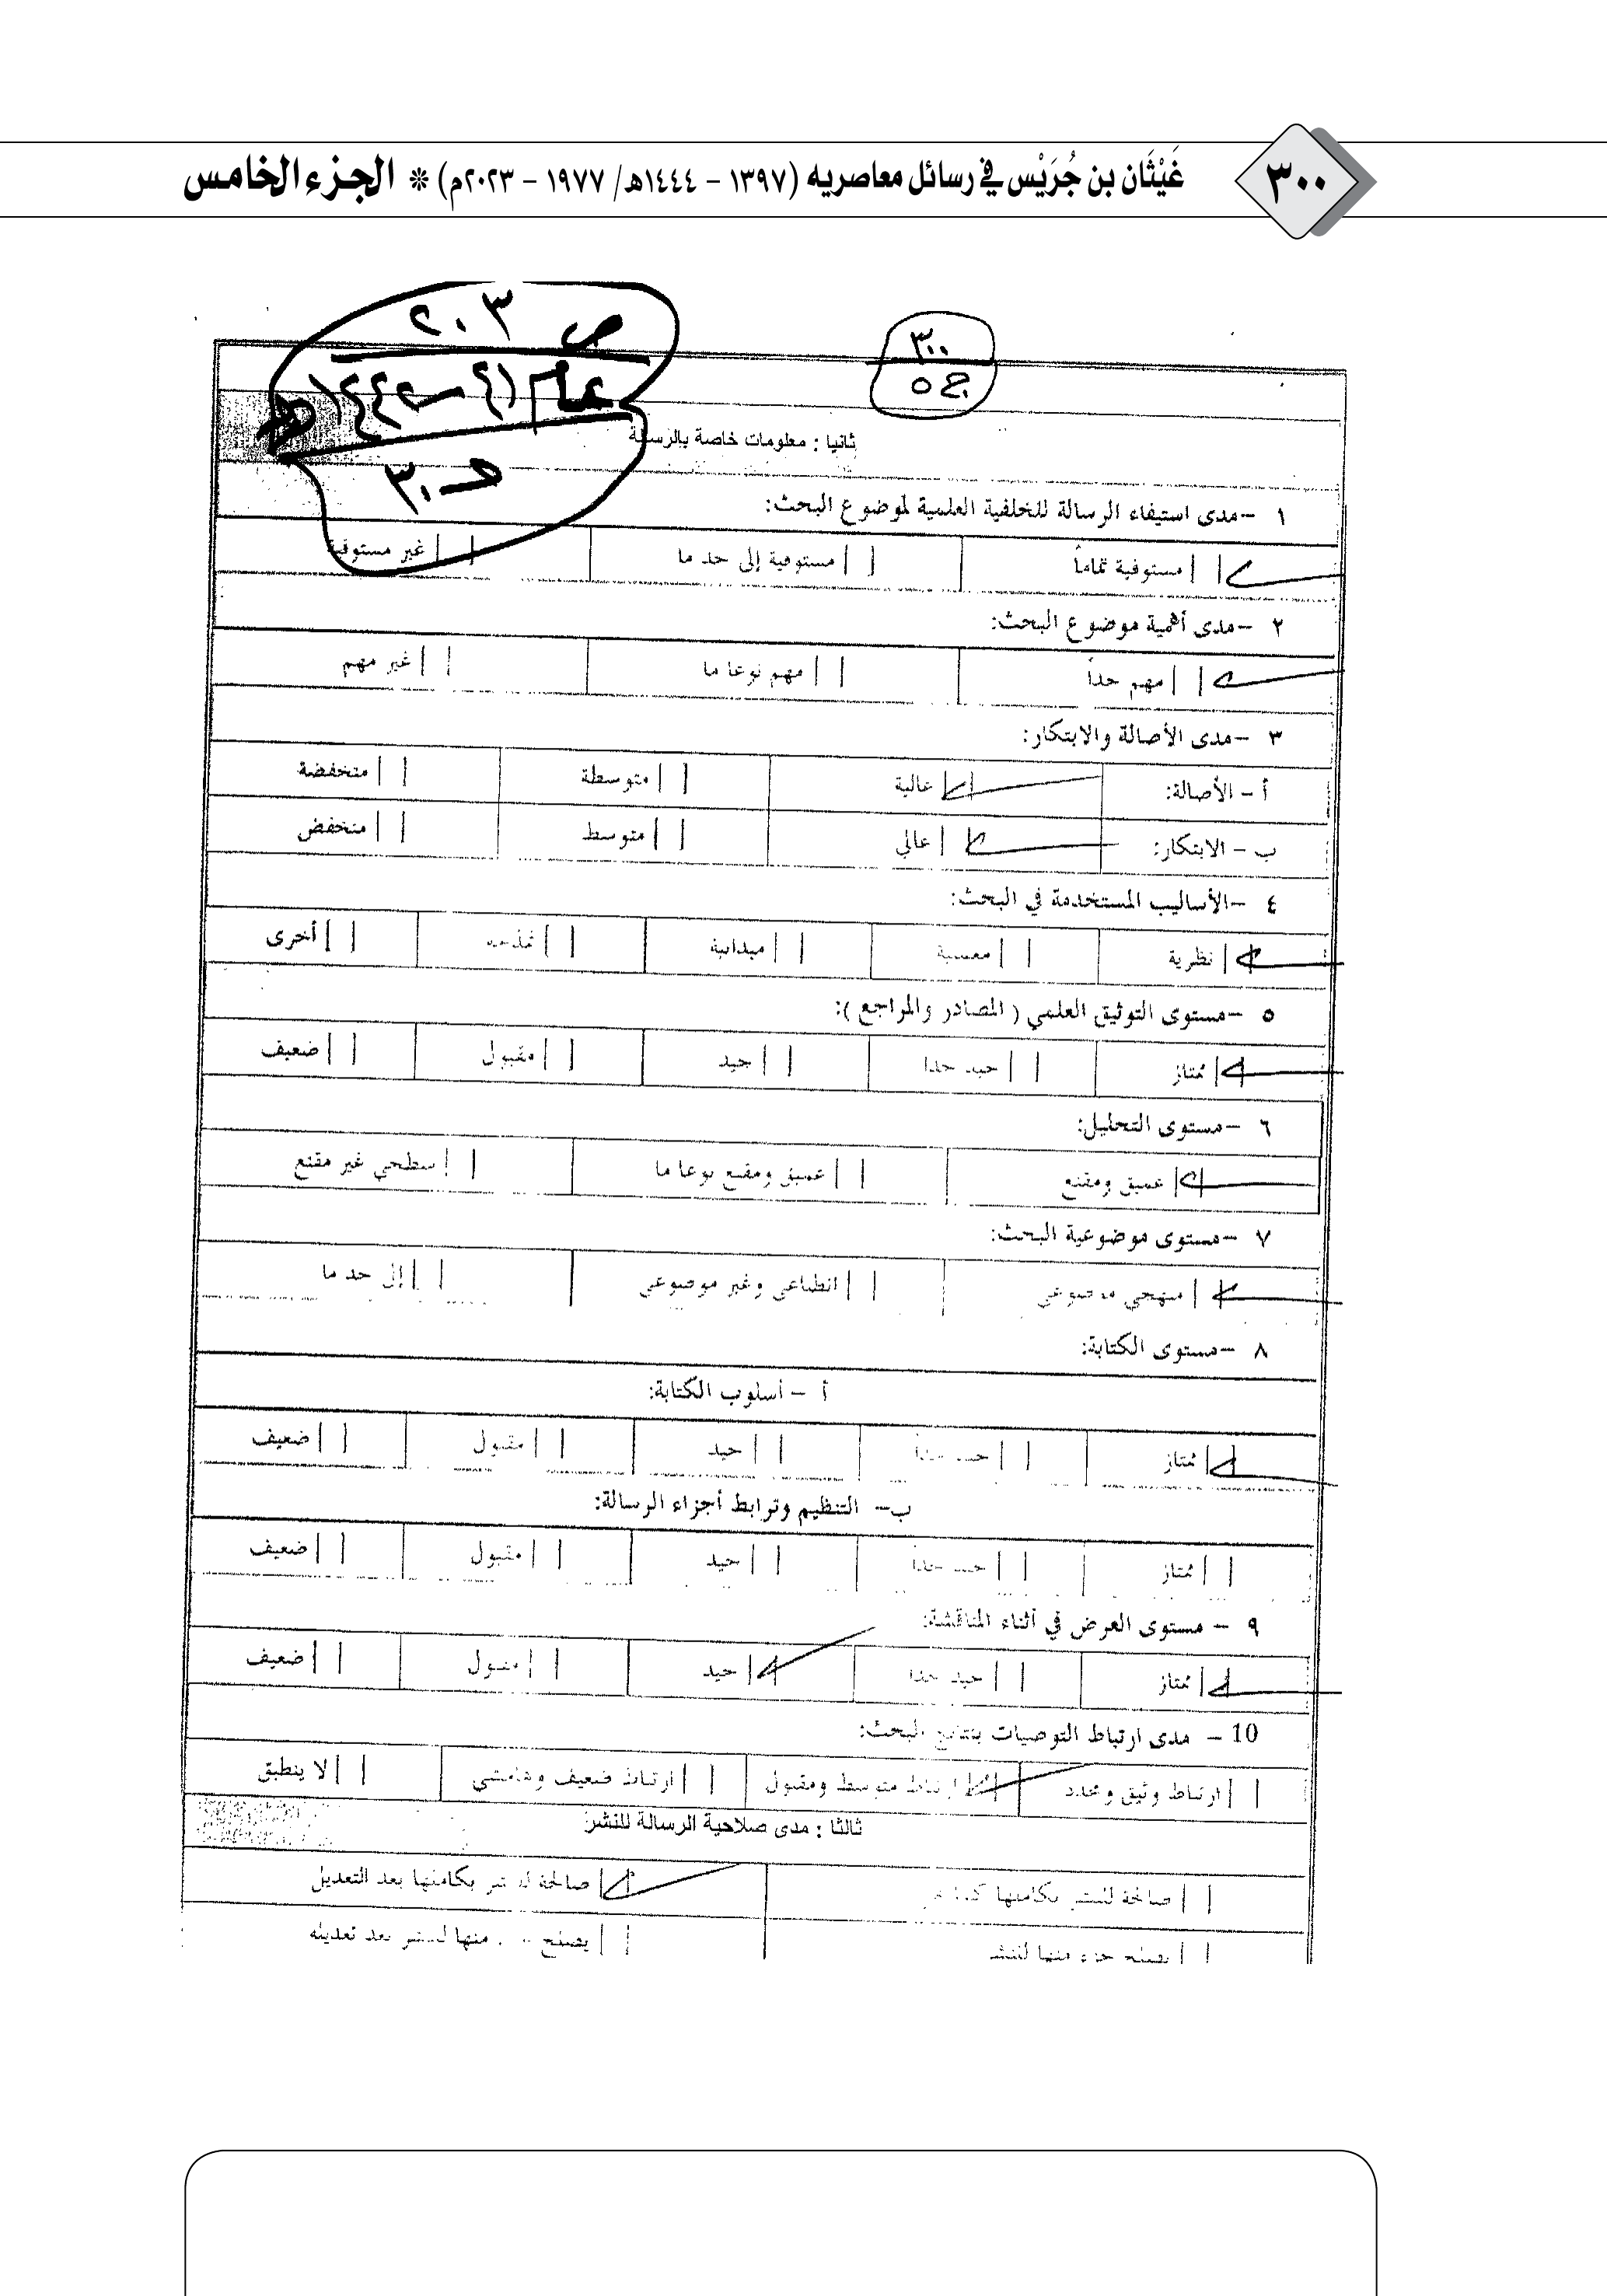 ٣٠٠
غَيْثَان بن جُرَيْس في رسائل معاصريه (١٣٩٧ - ١٤٤٤هـ/ ١٩٧٧ - ٢٠٢٣م) * الجزء الخامس
ص ٢٠٣
٣٠٠
ج ٥
عام
ثانيا : معلومات خاصة بالرسالة
١ -مدى استيفاء الرسالة للخلفية العلمية لموضوع البحث:
مستوفية تماماً | مستوفية إلى حد ما | غير مستوفية
٢ -مدى أهمية موضوع البحث:
مهم جداً | مهم نوعا ما | غير مهم
٣ -مدى الأصالة والابتكار:
أ - الأصالة: | عالية | متوسطة | منخفضة
ب - الابتكار: | عالي | متوسط | منخفض
٤ -الأساليب المستخدمة في البحث:
نظرية | معملية | ميدانية | أخرى
٥ -مستوى التوثيق العلمي ( المصادر والمراجع ):
ممتاز | جيد جدا | جيد | مقبول | ضعيف
٦ -مستوى التحليل:
عميق ومقنع | عميق ومقنع نوعا ما | سطحي غير مقنع
٧ -مستوى موضوعية البحث:
منهجي موضوعي | انطباعي وغير موضوعي | إلى حد ما
٨ -مستوى الكتابة:
أ - أسلوب الكتابة:
ممتاز | جيد جداً | جيد | مقبول | ضعيف
ب- التنظيم وترابط أجزاء الرسالة:
ممتاز | جيد جداً | جيد | مقبول | ضعيف
٩ - مستوى العرض في أثناء المناقشة:
ممتاز | جيد جدا | جيد | مقبول | ضعيف
10 - مدى ارتباط التوصيات بنتائج البحث:
ارتباط وثيق ومحدد | ارتباط متوسط ومقبول | ارتباط ضعيف وهامشي | لا ينطبق
ثالثا : مدى صلاحية الرسالة للنشر
صالحة للنشر بكاملها | صالحة للنشر بكاملها بعد التعديل
يصلح جزء منها للنشر | يصلح منها للنشر بعد تعديله